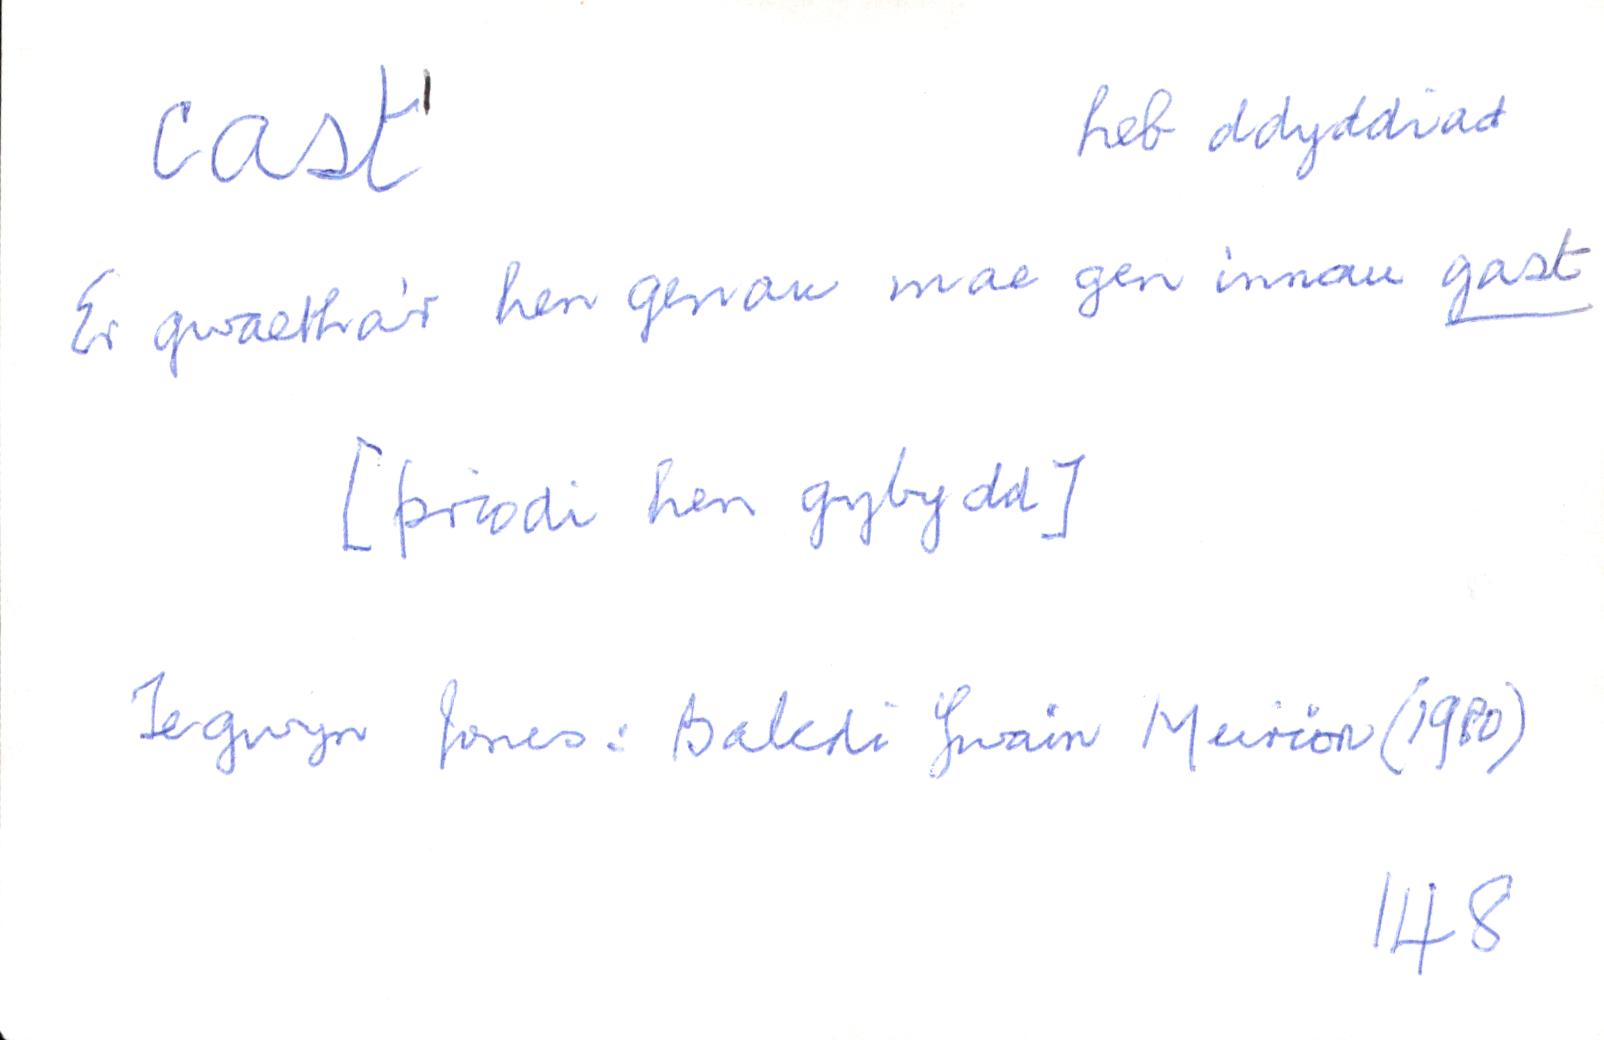 cast¹ heb ddyddiad
Er gwaetha'r hen genau mae gen innau gast
[priodi hen gybydd]
Tegwyn Jones: Baledi Ywain Meirion (1980)
148